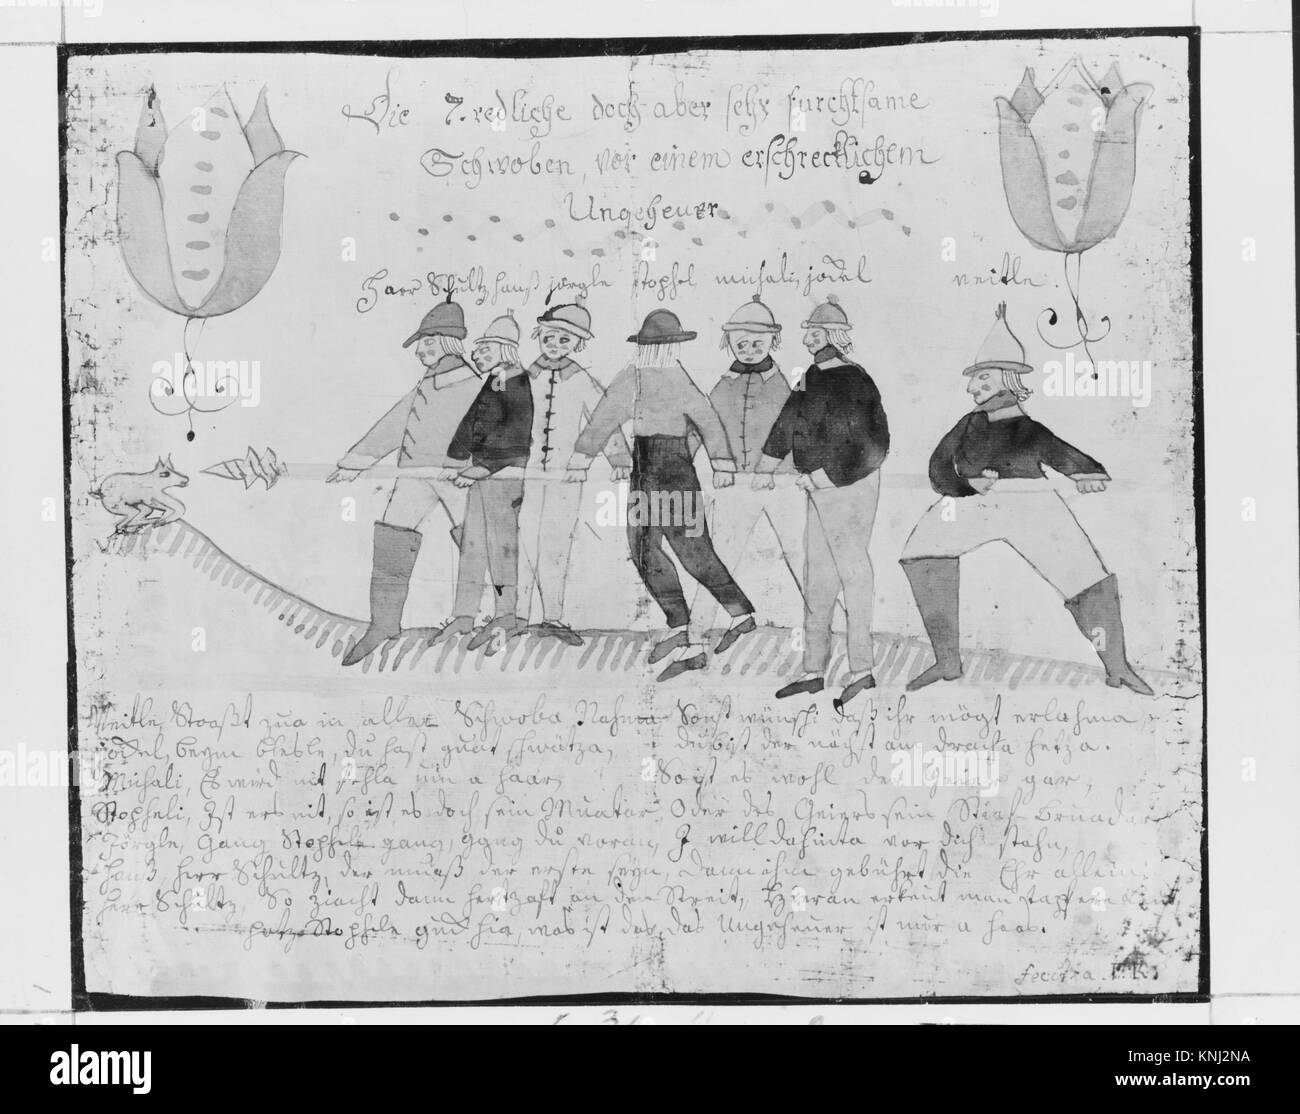 Die 7. redliche doch aber sehr furchtsame
Schwoben, vor einem erschrecklichem
Ungeheuer.
Herr Schultz hanß jörgle stophel michali jodel veitle.
Veitle, Stooßt zua in aller Schwoba Nahma Sonst wünsch i daß ihr mögt erlahma,
Jodel, beym blesle, du hast guat schwätza, Du bist der nächst am dracha hetza.
Michali, Es wird nit fehla um a haar, So ist es wohl der gar,
Stopheli, Ist ers nit, so ist es doch sein Muatar, Oder des sein Stief Bruadar
Jörgle, Gang Stophele gang, gang du voran, I will dahinta vor dich stahn,
Hanß, herr Schultz, der muaß der erste seyn, Dann ihm gebührt die Ehr allein,
Herr Schultz, So ziacht dann hertzhaft an den Streit, Hieran erkent man tapfere
Stophele guck hia, was ist das, das Ungeheuer ist nur a haas.
fecit F.R.
alamy
Image ID: KNJ2NA
www.alamy.com